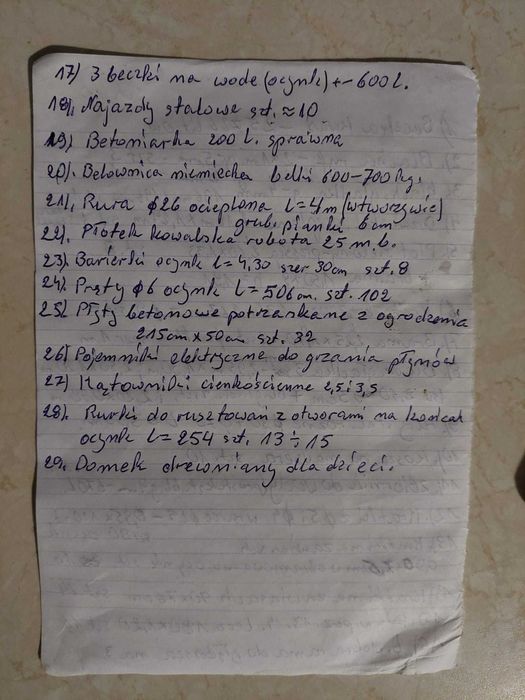 17) 3 beczki na wode (ocynk) +- 600 l.
18). Najazdy stalowe szt. ≈ 10
19). Betoniarka 200 l. sprawna
20). Belownica niemiecka belki 600-700 kg.
21). Rura ϕ26 ocieplona l=4m (w tworzywie)
grub. pianki 6cm
22). Płotek kowalska robota 25 m.b.
23). Barierki ocynk l=4,30 szer 30cm szt. 8
24). Pręty ϕ6 ocynk l=506cm. szt. 102
25). Płyty betonowe potrzaskane z ogrodzenia
215cm x 50cm szt. 32
26). Pojemniki elektryczne do grzania płynów
27). Kątowniki cienkościenne 2,5 i 3,5
28). Rurki do rusztowań z otworami na końcach
ocynk l=254 szt. 13÷15
29. Domek drewniany dla dzieci.